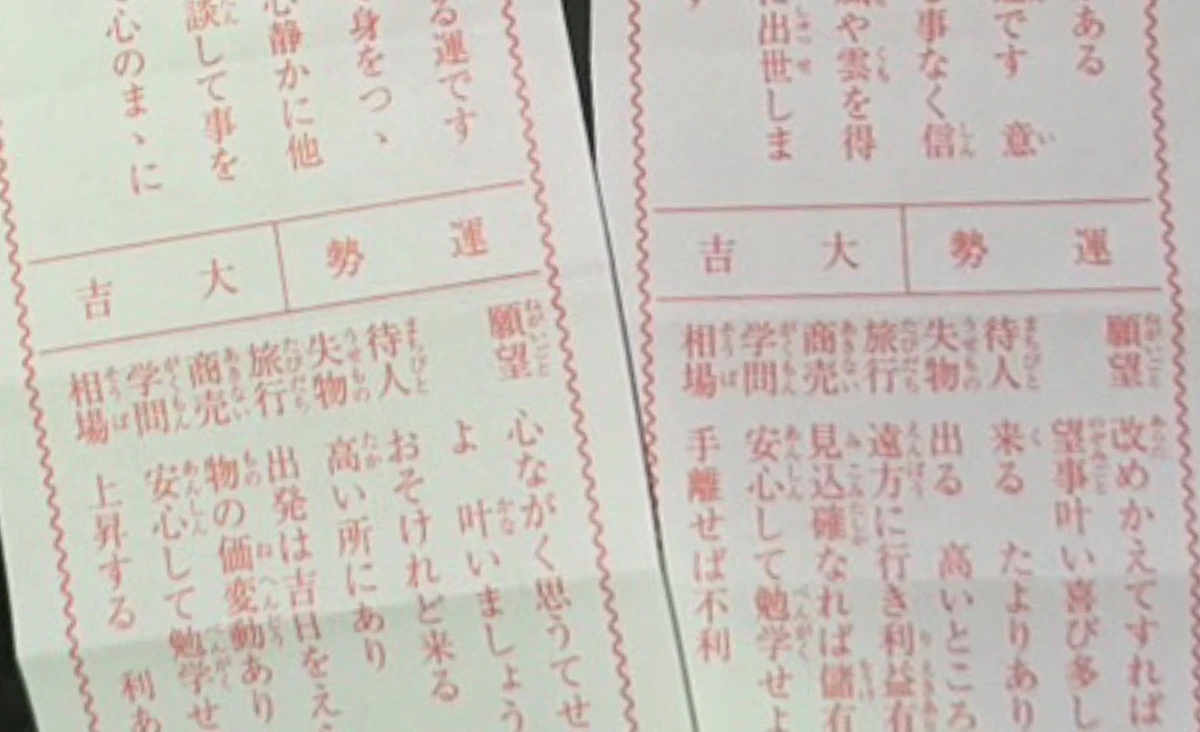 ある
です 意
事なく信
や雲を得
出世しま
運勢 大吉
願望 改めかえてすれば
望事叶い喜び多し
待人 来る たよりあり
失物 出る 高いところ
旅行 遠方に行き利益有
商売 見込確なれば儲有
学問 安心して勉学せよ
相場 手離せば不利
る運です
身をつゝ
心静かに他
談して事を
心のまゝに
運勢 大吉
願望 心ながく思うてせ
よ 叶いましょう
待人 おそけれど来る
失物 高い所にあり
旅行 出発は吉日をえ
商売 物の価変動あり
利あ
学問 安心して勉学せ
相場 上昇する